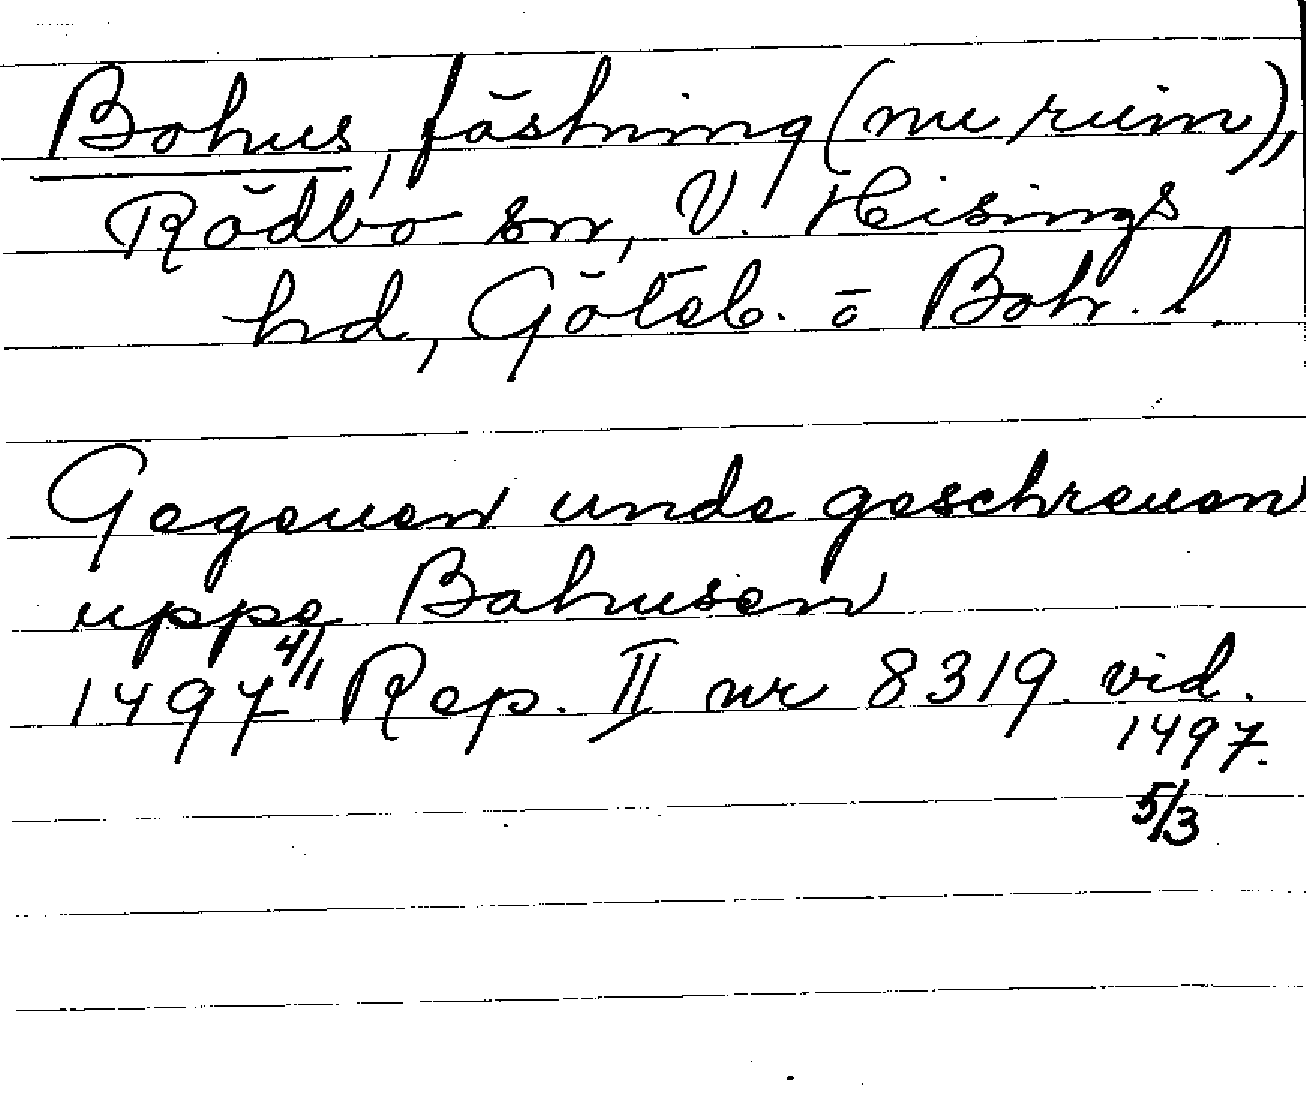 Bohus, fästning (nu ruin),
Rödbo sn, V. Hisings
hd, Göteb. o Boh. l.
Gegeuen unde geschreuen
uppe Bahusen
1497 4/1 Rep. II nr 8319. vid.
1497.
5/3